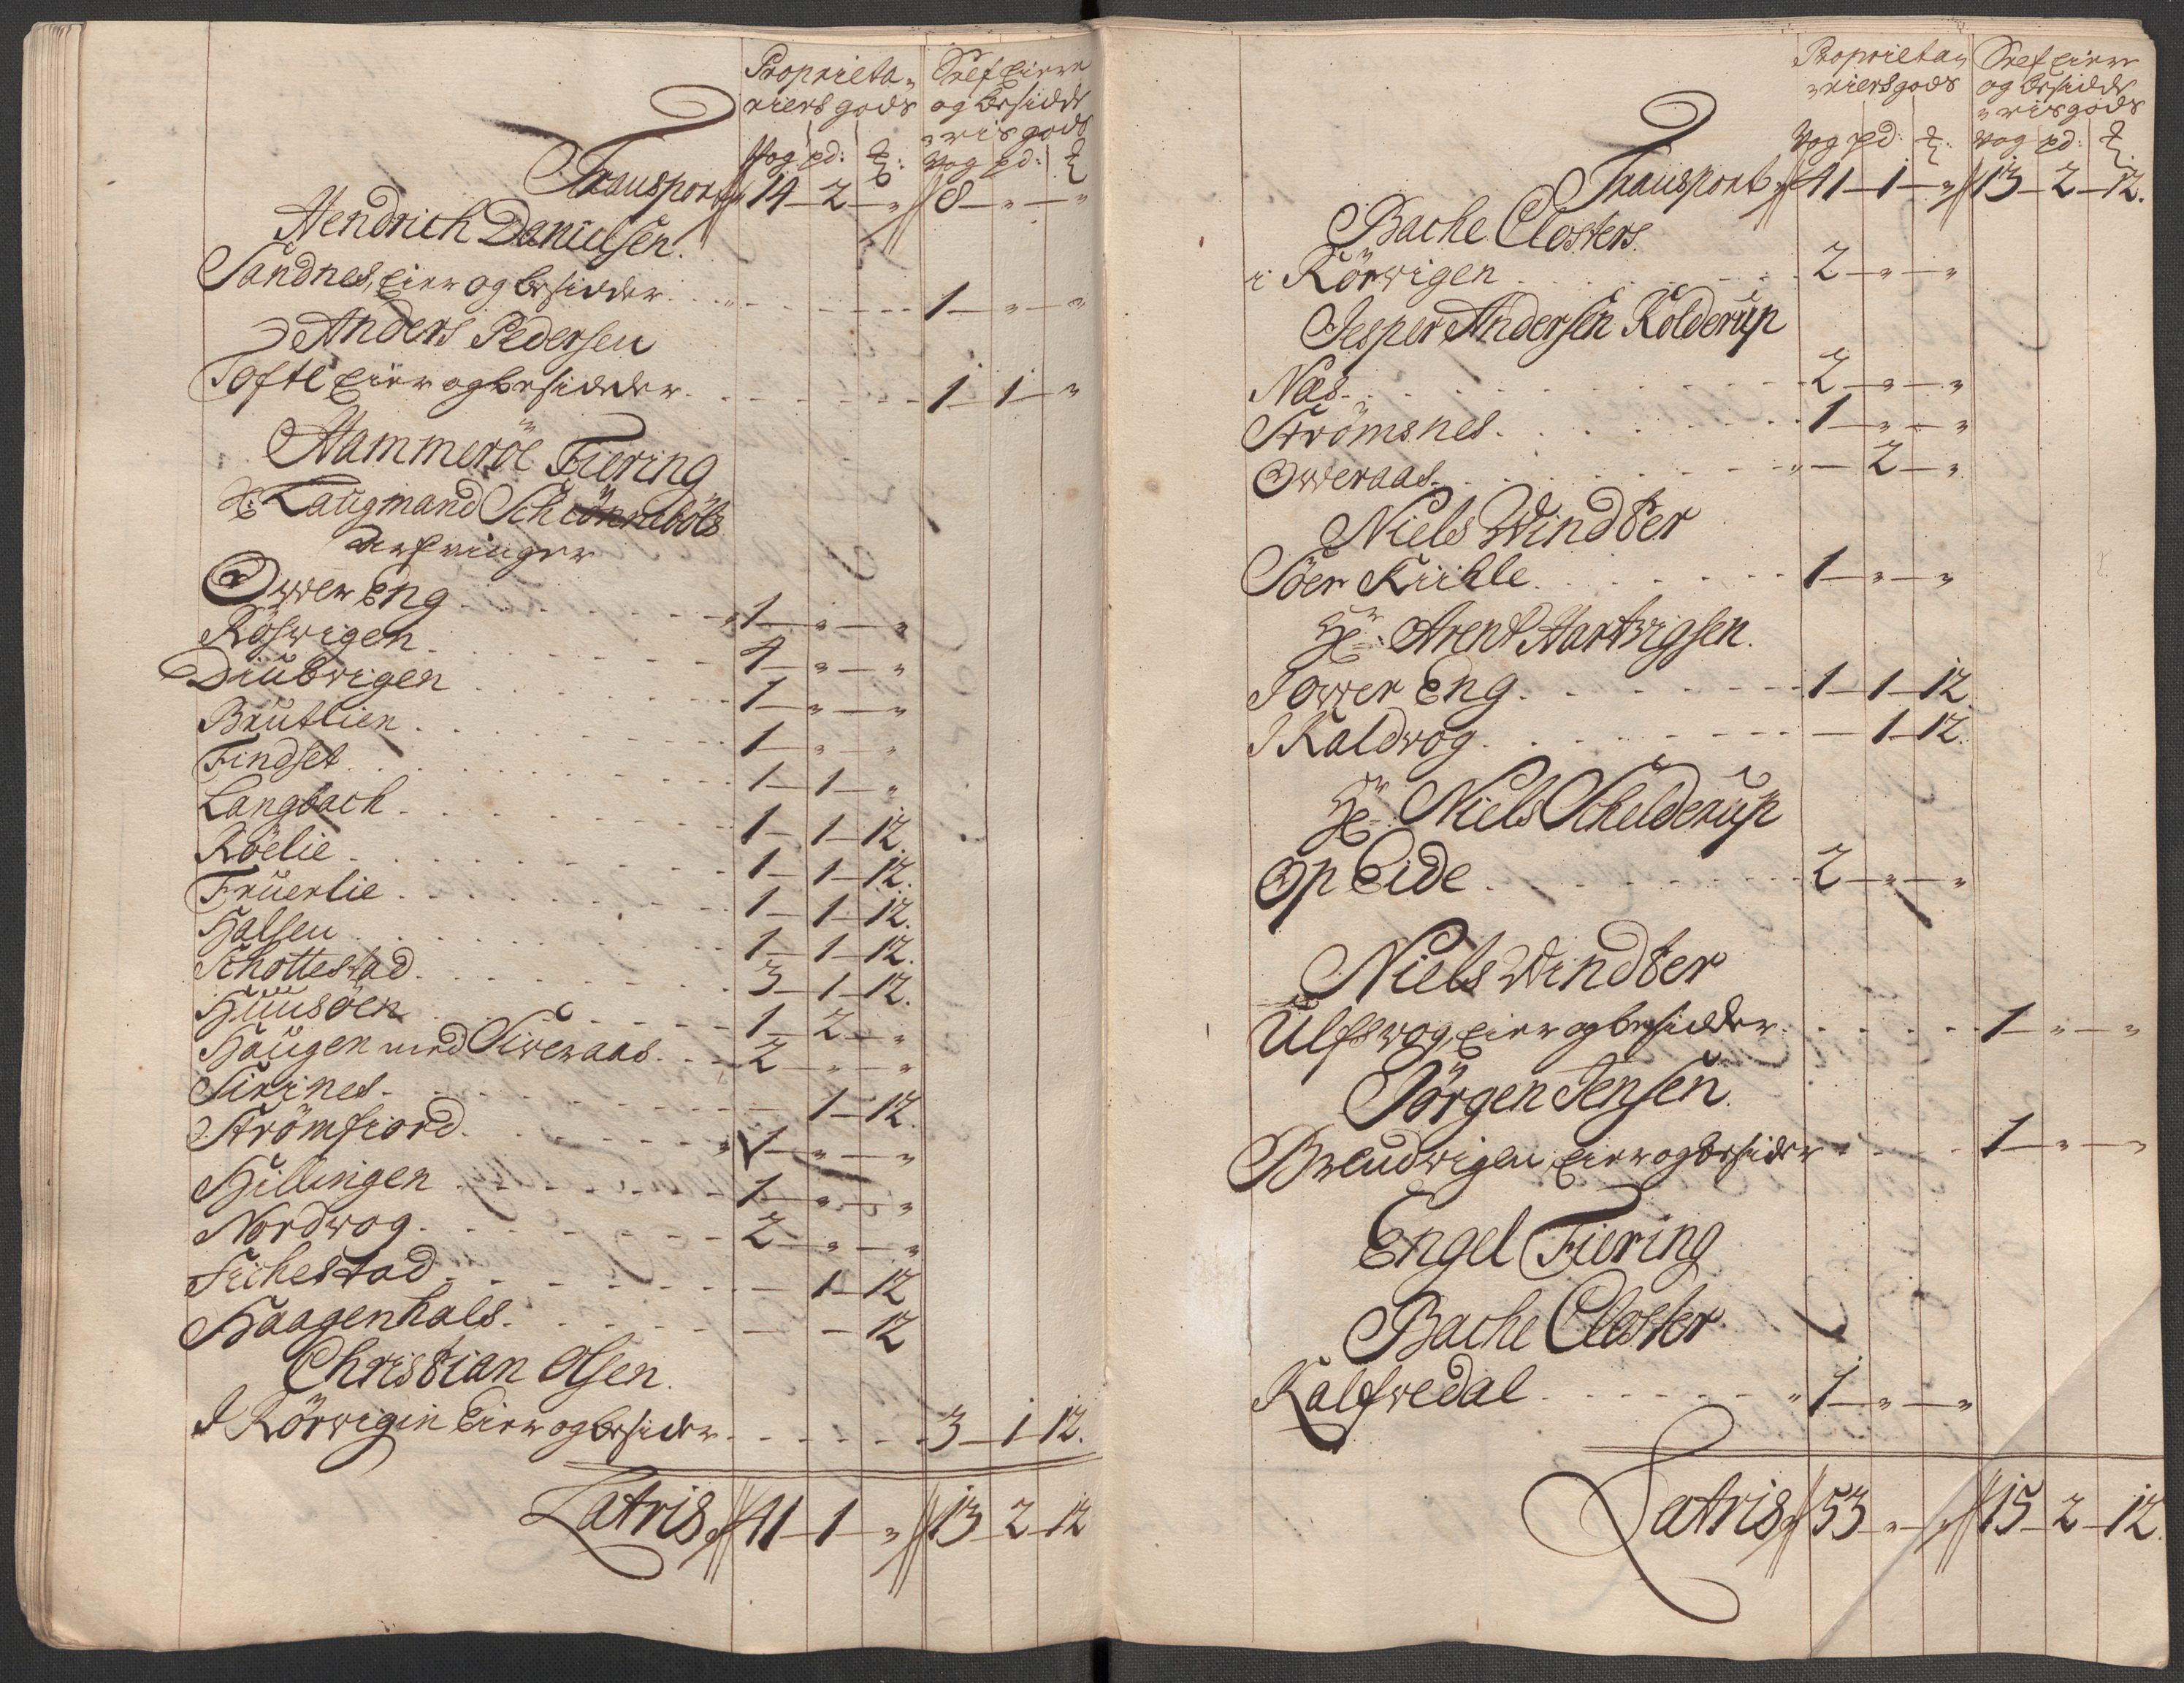 Proprieta„
riers gods
Self Eiere
og besidde
„ris gods
Vog pd: ℔:
Vog pd: ℔
Transport 14 – 2 – „ 8 – „ – „
Hendrich Danielsen.
Sandnes, Eier og besidder . . . 1 – „ – „
Anders Pedersen
Tofte Eier og besidder . . . 1 – 1 – „
Hammeröe Fiering
Hr: Laugmand Schiönneböls
Arfvinger
Ofver Eng . . . 1 – „ – „
Röswigen . . . 4 – „ – „
Diubwigen . . . 1 – „ – „
Brutlien . . . 1 – „ – „
Findset . . . 1 – 1 – „
Langbach . . . 1 – 1 – 12.
Röelie . . . 1 – 1 – 12.
Fruerlie . . . 1 – 1 – 12.
Halsen . . . 1 – 1 – 12.
Schottestad . . . 3 – 1 – 12.
Huusöen . . . 1 – 2 – „
Haugen med Siweraas . . . 2 – „ – „
Sirines . . . – 1 – 12.
Strömfiord . . . 1 – „ – „
Hillingen . . . 1 – „ – „
Nordwog . . . 2 – „ – „
Fichestad . . . – 1 – 12
Haagenhals . . . – – 12
Christian Olsen.
I Körwigin Eier og besider . . . 3 – 1 – 12.
Latris 41 – 1 – „ 13 – 2 – 12
Proprieta„
„riers gods
Self Eiere
og besidde
„ris gods
Vog pd: ℔:
Vog pd: ℔.
Transport 41 – 1 – „ 13 – 2 – 12.
Bache Closters.
i Körwigen . . . 2 – „ – „
Jesper Andersen Kolderup
Næs . . . 2 – „ – „
Strömsnes . . . 1 – „ – „
Owveraas . . . „ – 2 – „
Niels Windster
Söer Kiihle . . . 1 – „ – „
Hr: Arent Hartvigsen.
I ower Eng . . . 1 – 1 – 12
I Kaldvog . . . – 1 – 12.
Hr: Niels Schelderup
Op Eide . . . 2 – „ – „
Niels Windster
Ulfswog, Eier og besidder . . . 1 – „ – „
Jörgen Jensen.
Breudwigen, Eier og besider . . . 1 – „ – „
Engel Fiering
Bache Closter
Kalfwedal . . . 1 – „ – „
Latris 53 – „ – „ 15 – 2 – 12.